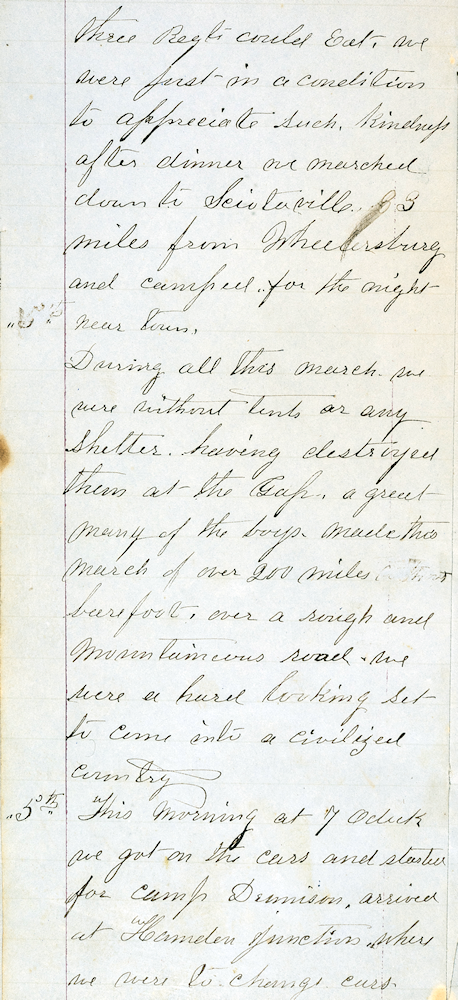 three Regts could Eat, we
were just in a condition
to appreciate such, kindness
after dinner we marched
down to Sciotoville 3
miles from Wheelersburg
and camped, for the night
near town,
During all this march we
were without tents or any
Shelter. having destroyed
them at the Gap, a great
many of the boys made this
march of over 200 miles
barefoot, over a rough and
Mountaineous road. we
were a hard looking set
to come into a civilized
country
"5th" This Morning at 7 Oclock
we got on the cars and started
for camp Dennison, arrived
at Hamden junction, where
we were to change cars